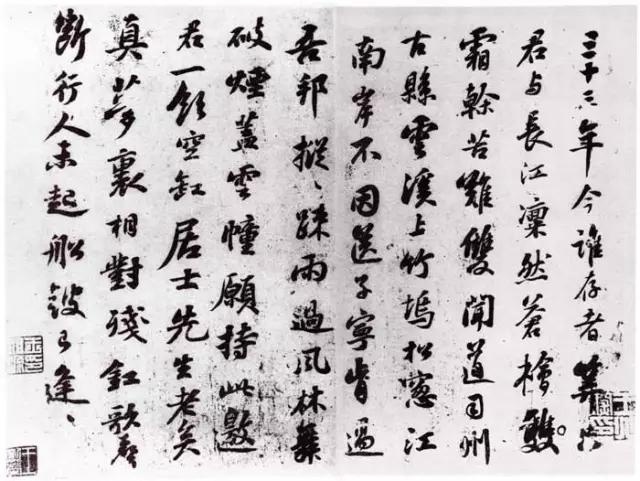 三十三年今誰存者算只
君与長江凜然蒼檜雙
霜榦苦難雙聞道司州
古縣雲溪上竹塢松窓江
南岸不因送子寧肯過
吾邦摐〻踈雨過風林舞
破煙蓋雲幢願持此邀
君一飲空缸居士先生老矣
真夢裏相對殘釭歌聲
斷行人未起船鼓已逢〻